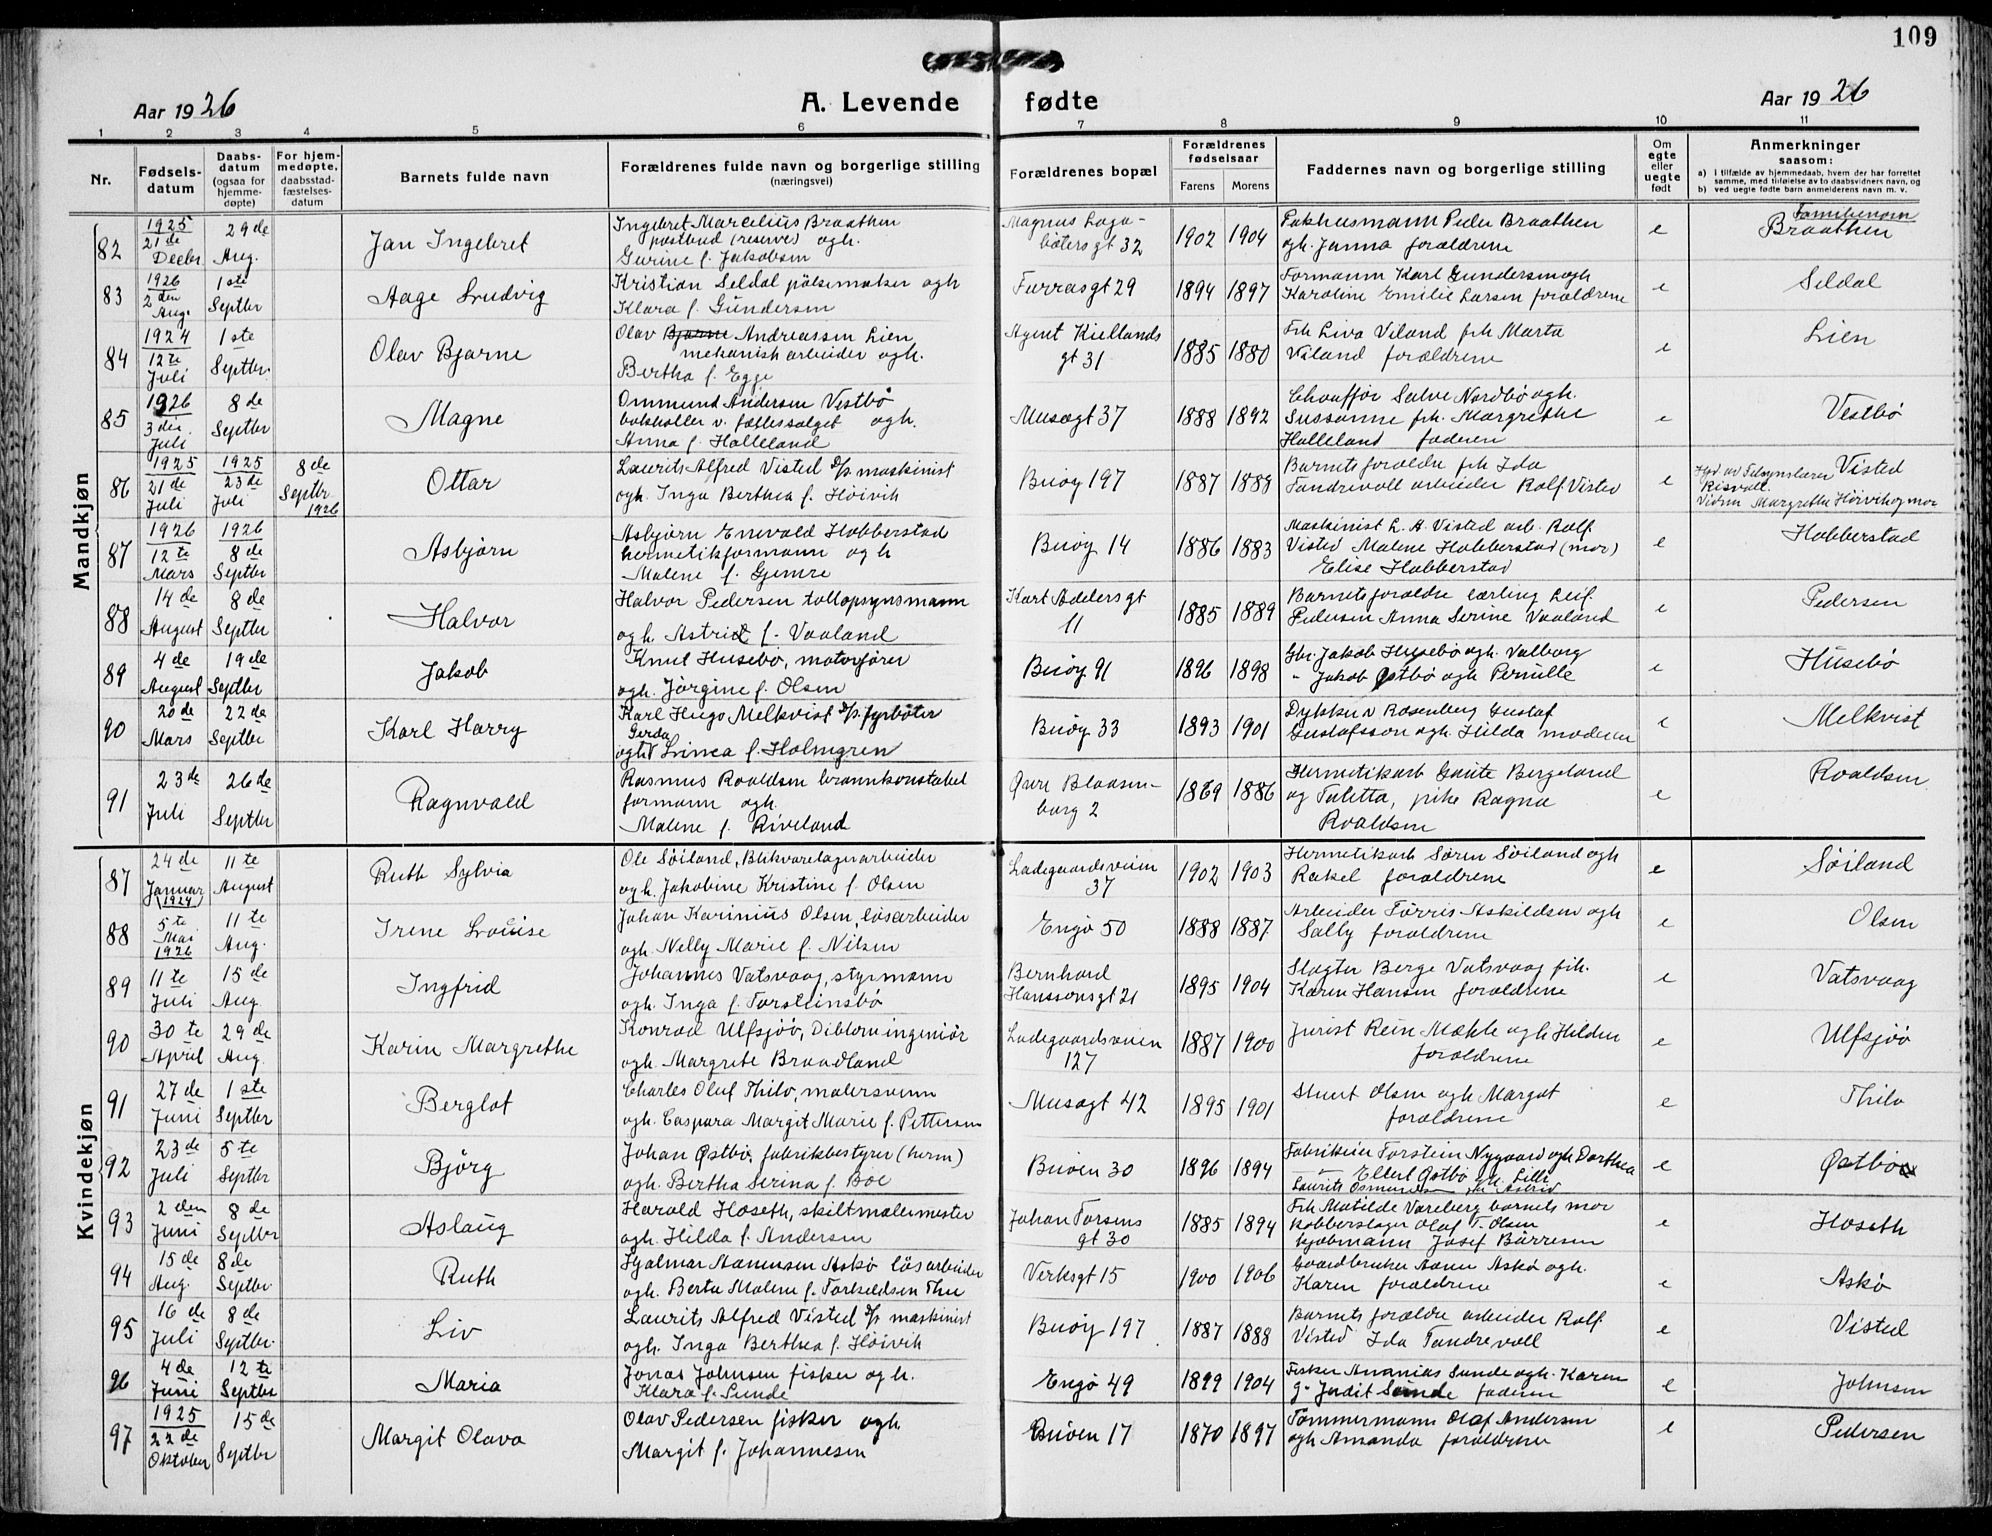 109
Aar 1926 A. Levende fødte Aar 1926
1 2 3 4 5 6 7 8 9 10 11
Nr. Fødsels-datum Daabs-datum (ogsaa for hjemme-døpte) For hjem-medøpte, daabsstad-fæstelses-datum Barnets fulde navn Forældrenes fulde navn og borgerlige stilling (næringsvei) Forældrenes bopæl Forældrenes fødselsaar Farens Morens Faddernes navn og borgerlige stilling Om egte eller uegte født Anmerkninger saasom:
a) I tilfælde av hjemmedaab, hvem der har forrettet samme, med tilføielse av to daabsvidners navn, og
b) ved uegte fødte barn anmelderens navn m. v.
Mandkjøn
82 1925 21de Decbr. 29de Aug. Jan Ingebret Ingebret Marcelius Braathen postbud (reserve) ogh. Gurine f. Jakobsen Magnus Laga-bøters gt 32 1902 1904 Pakhusmann Peder Braathen ogh. Janna forældrene e Familienavn Braathen
83 1926 2den Aug. 1ste Septbr Aage Ludvig Kristian Seldal pølsemaker ogh Klara f. Gundersen Furrasgt 29 1894 1897 Formann Karl Gundersen ogh Karoline Emilie Larsen forældrene e Seldal
84 1924 12te Juli 1ste Septbr. Olav Bjarne Olav Bjarne Andreassen Lien mekanisk arbeider ogh. Bertha f. Egge Agent Kiellands gt 31 1885 1880 Frk Liva Viland frk Marta Viland forældrene e Lien
85 1926 3die Juli 8de Septbr Magne Ommund Andersen Vestbø bokholler v. fællessalget ogh. Anna f. Halleland Musægt 37 1888 1892 Chauffør Salve Nordbø ogh. Sussanne frk. Margrethe Halleland faderen e Vestbø
86 1925 21de Juli 1925 23de Juli 8de Septbr 1926 Ottar Laurits Alfred Visted D/p maskinist ogh. Inga Berthea f. Høivik Buøy 197 1887 1888 Barnets forældre frk Ida Tandrevoll arbeider Rolf Visted e Hjd av Tilsynslærer Risvoll Vidner Margrethe Høivik og mor Visted
87 1926 12te Mars 1926 8de Septbr Asbjørn Asbjørn Enevald Hobberstad hermetikformann ogh Malene f. Gjemre Buøy 14 1886 1883 Maskinist L. A. Visted arb. Rolf Visted Malene Hobberstad (mor) Elise Hobberstad e Hobberstad
88 14de August 8de Septbr Halvor Halvor Pedersen tollopsynsmann ogh. Astrid f. Vaaland Kort Adelers gt 11 1885 1889 Barnets forældre lærling Leif Pedersen Anna Serine Vaaland e Pedersen
89 4de August 19de Septbr Jakob Knut Husebø, motorfører ogh. Jørgine f. Olsen Buøy 91 1896 1898 Hr. Jakob Husebø ogh. Valborg " Jakob Østbø ogh Pernille e Husebø
90 20de Mars 22de Septbr Karl Harry Karl Hugo Melkvist D/p. fyrbøter ogh Gerda Linea f. Holmgren Buøy 33 1893 1901 Dykker Rosenberg Gustaf Gustafsson ogh. Hilda moderen e Melkvist
91 23de Juli 26de Septbr Ragnvald Rasmus Roaldsen brannkonstabel formann ogh. Malene f. Riveland Øvre Blaasen-borg 2 1869 1886 Hermetikarb Gaute Bergeland og Taletta, pike Ragna Roaldsen e Roaldsen
Kvindekjøn
87 24de Januar (1924) 11te August Ruth Sylvia Ole Søiland, Blikvarelagerarbeider ogh. Jakobine Kristine f. Olsen Ladegaardsveien 37 1902 1903 Hermetikarb Søren Søiland ogh Rakel forældrene e Søiland
88 5te Mai 1926 11te Aug. Irene Louise Johan Karinius Olsen, løsarbeider ogh Nelly Marie f. Nilsen Engø 50 1888 1887 Arbeider Tørris Askildsen ogh Sally forældrene e Olsen
89 11te Juli 15de Aug. Ingfrid Johannes Vatsvaag, styrmann ogh. Inga f. Torsteinsbø Bernhard Hanssonsgt 21 1895 1904 Slagter Berge Vatsvaag frk. Karen Hansen forældrene e Vatsvaag
90 30te April 29de Aug. Karin Margrethe Konrad Ulfsjøø, Diblomingeniør ogh. Margrete Braadland Ladegaardsveien 127 1887 1900 Jurist Rein Mækle ogh Hilden forældrene e Ulfsjøø
91 27de Juni 1ste Septbr Berglot Charles Oluf Thilo, malersvenn ogh. Caspara Margit Marie f. Pettersen Musægt 42 1895 1901 Stuert Olsen ogh Margot forældrene e Thilo
92 23de Juli 5te Septbr Bjørg Johan Østbø, fabrikbestyrer (herm) ogh. Bertha Serina f. Boe Buøen 30 1896 1894 Fabrikeier Torstein Nygaard ogh Dorthea Ellert Østbø ogh. Lilli Laurits Osmundsen frk Astrid e Østbø
93 2den Juni 8de Septber Aslaug Harald Hoseth, skiltmalermester ogh. Hilda f. Andersen Johan Torsens gt 30 1885 1894 Frk Matilde Vareberg barnets mor kobberslager Olaf T. Olsen kjøbmann Josef Børresen e Hoseth
94 15de Aug. 8de Septbr Ruth Hjalmar Aanensen Askø løsarbeider ogh. Berta Malene f. Torkeldsen Thu Verksgt 15 1900 1906 Gaardbruker Aanen Askø ogh. Karen forældrene e Askø
95 16de Juli 8de Septbr. Liv Laurits Alfred Visted D/p maskinist ogh. Inga Berthea f. Høivik Buøy 197 1887 1888 Barnets forældre arbeider Rolf Visted Ida Tandrevoll e Visted
96 4de Juni 12te Septbr Maria Jonas Johnsen fisker ogh. Klara f. Sunde Engø 49 1899 1904 Fisker Ananias Sunde ogh. Karen g. Judit Sunde faderen e Johnsen
97 1925 22de Oktober 15de Septbr Margit Olava Olav Pedersen fisker ogh Margit f. Johannesen Buøen 17 1870 1897 Tømmermann Olaf Andersen ogh Amanda forældrene e Pedersen